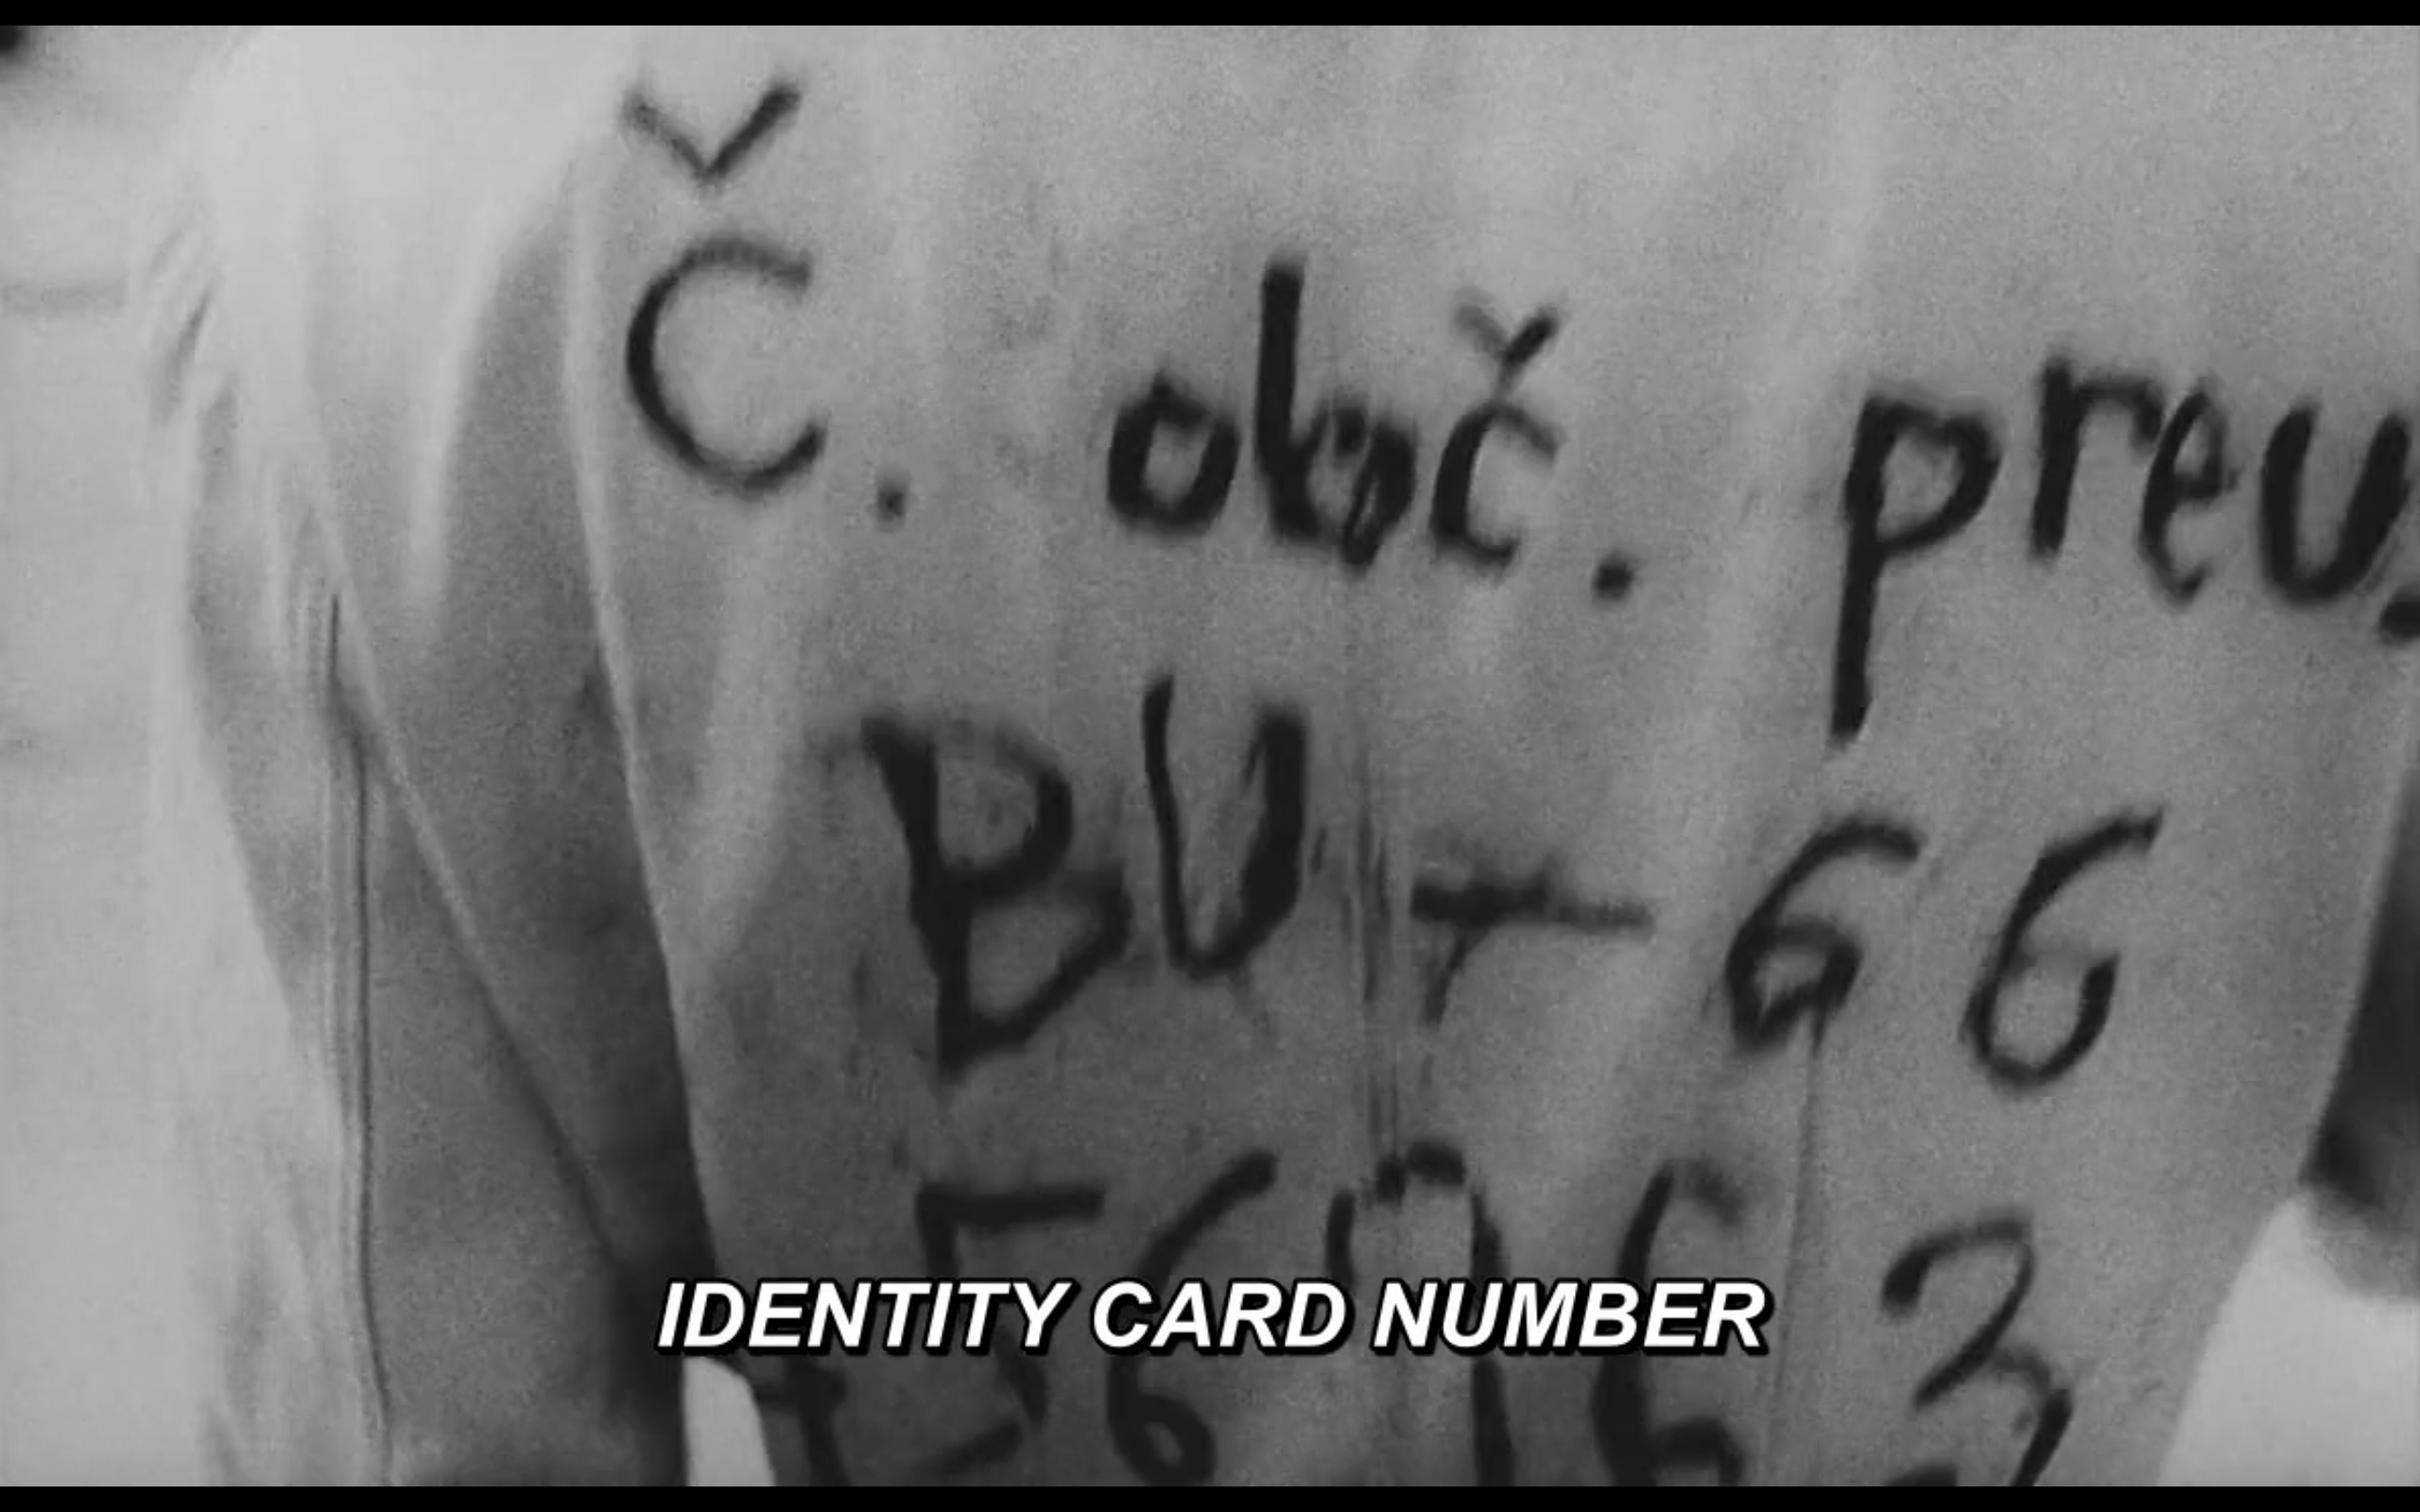 Č. obč. preu.
BU-66
56763
IDENTITY CARD NUMBER